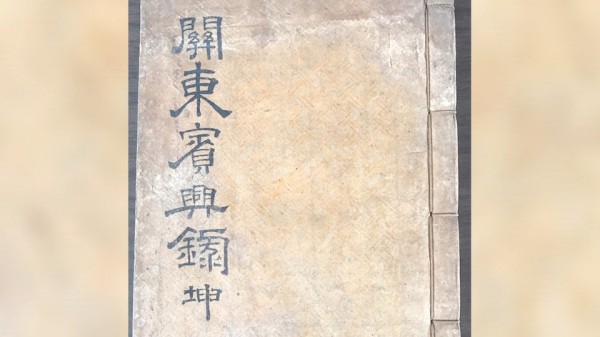 關東賓興錄坤